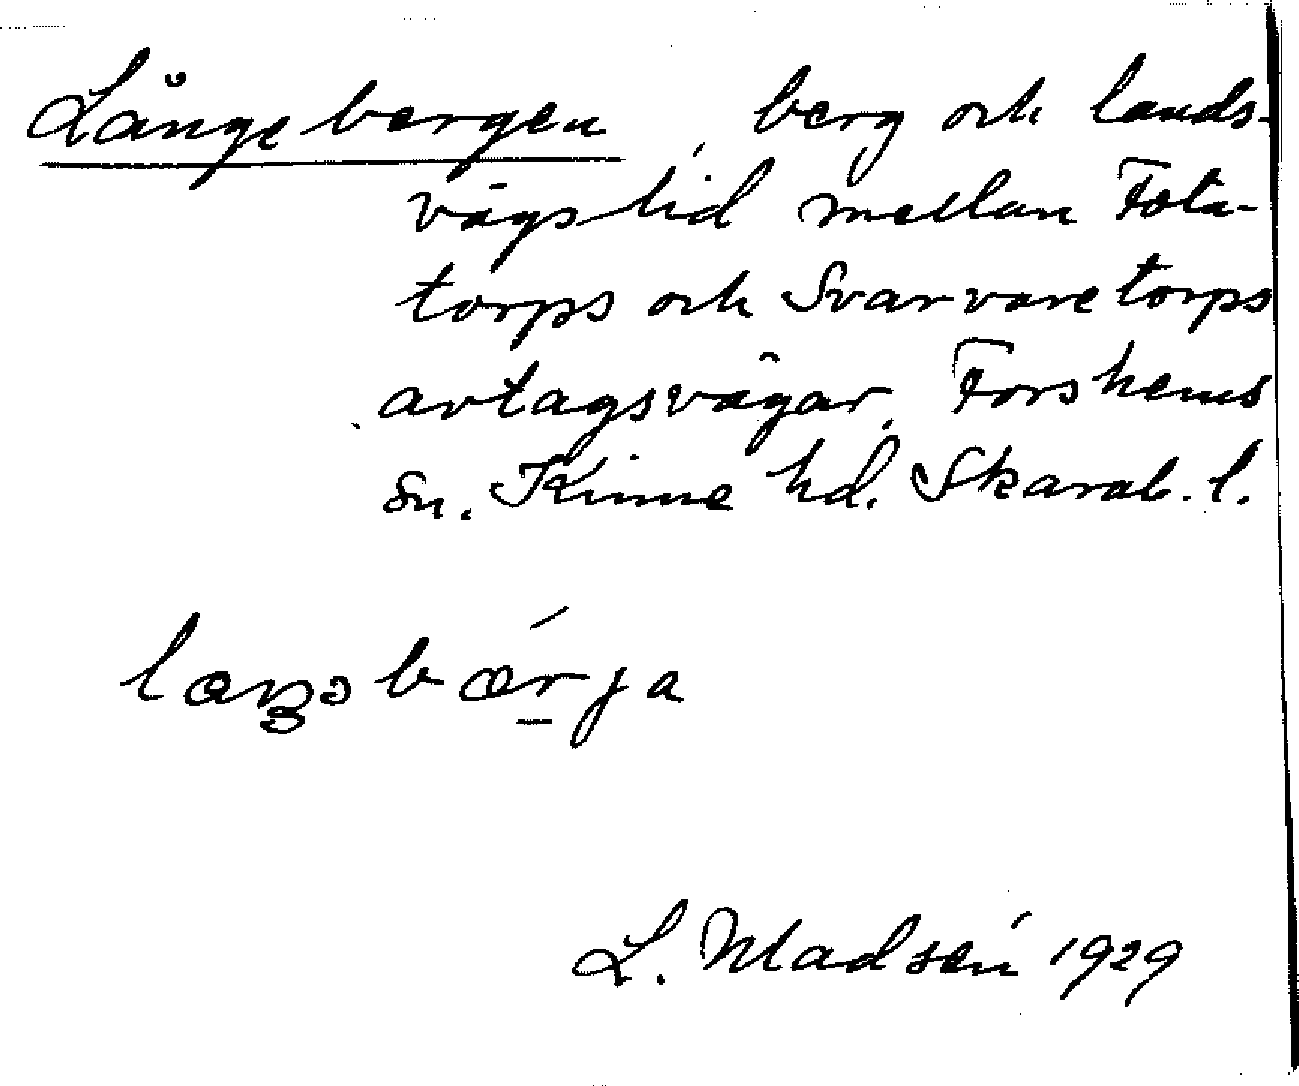 Långebergen, berg och lands-
vägslid mellan Fota-
torps och Svarvaretorps
avtagsvägar, Forshems
sn. Kinne hd. Skarab. l.
L. Madsén 1929